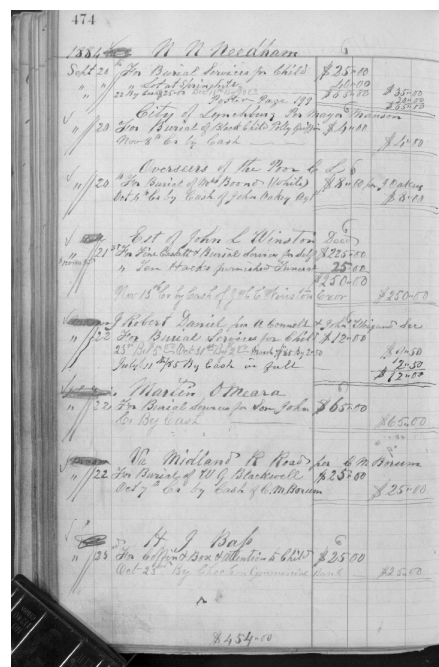 474
1884 W. W. Needham
Sept 20 For Burial Services for Child $25.00
" " " Lot at Springhill
$35.00
Page 199
City of Lynchburg Per Mayor Manson
" 20 For Burial of Black Child $4.00
Nov 8th Cr by Cash $4.00
Overseers of the Poor C. L.
" 20 For Burial of Mrs Boond White $8.00
Oct 4th Cr by Cash of John Oakey Agt $8.00
Est of John L Winston Decd
" 21st For Fine Casket & Burial Services for Self $225.00
" Ten Hacks furnished Funeral 25.00
$250.00
Nov 13th Cr by Cash of Winston Exor $250.00
J Robert Daniel for
" 22 For Burial Services for Child $12.00
July 11th /85 By Cash in full
$12.00
Martin O'Meara
" 22 For Burial Services for Son John $65.00
Cr By Cash $65.00
Va Midland R Road per C. M. Borum
" 22 For Burial of W G Blackwell $25.00
Oct 7th Cr by Cash of C. M. Borum $25.00
H J Bass
" 23 For Coffin & Box & Attention to Child $25.00
Oct 25th By Check on Commercial Bank $25.00
$454.00